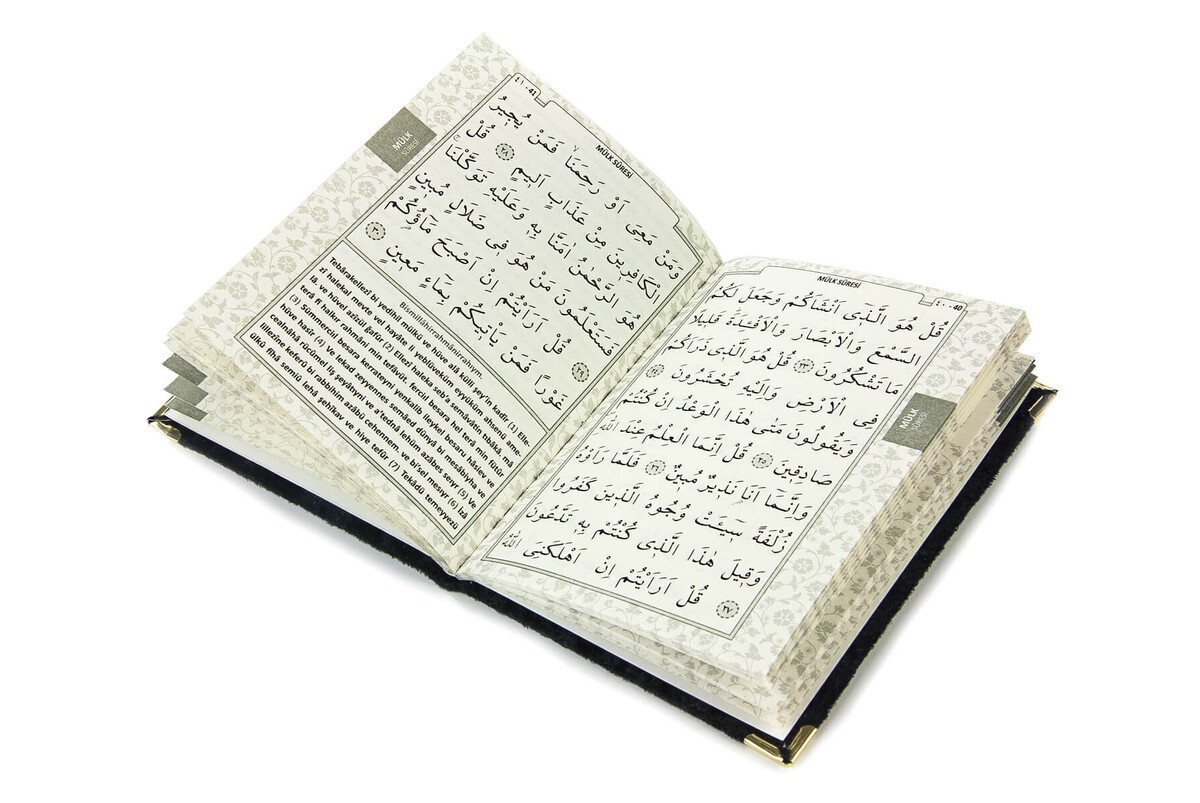 MÜLK SÛRESİ
٤٠ - 40
قُلْ هُوَ الَّذٖٓى اَنْشَاَكُمْ وَجَعَلَ لَكُمُ
السَّمْعَ وَالْاَبْصَارَ وَالْاَفْـِٔدَةَ قَلٖيلًا
مَا تَشْكُرُونَ ٢٣ قُلْ هُوَ الَّذٖى ذَرَاَكُمْ
فِى الْاَرْضِ وَاِلَيْهِ تُحْشَرُونَ ٢٤
وَيَقُولُونَ مَتٰى هٰذَا الْوَعْدُ اِنْ كُنْتُمْ
صَادِقٖينَ ٢٥ قُلْ اِنَّمَا الْعِلْمُ عِنْدَ اللّٰهِ
وَاِنَّمَٓا اَنَا نَذٖيرٌ مُبٖينٌ ٢٦ فَلَمَّا رَاَوْهُ
زُلْفَةً سٖٓيـَٔتْ وُجُوهُ الَّذٖينَ كَفَرُوا
وَقٖيلَ هٰذَا الَّذٖى كُنْتُمْ بِهٖ تَدَّعُونَ
٢٧ قُلْ اَرَاَيْتُمْ اِنْ اَهْلَكَنِىَ اللّٰهُ
MÜLK
SÛRESİ
٤١ - 41
MÜLK SÛRESİ
وَمَنْ مَعِىَ اَوْ رَحِمَنَا فَمَنْ يُجٖيرُ
الْكَافِرٖينَ مِنْ عَذَابٍ اَلٖيمٍ ٢٨ قُلْ
هُوَ الرَّحْمٰنُ اٰمَنَّا بِهٖ وَعَلَيْهِ تَوَكَّلْنَا
فَسَتَعْلَمُونَ مَنْ هُوَ فٖى ضَلَالٍ مُبٖينٍ
٢٩ قُلْ اَرَاَيْتُمْ اِنْ اَصْبَحَ مَٓاؤُكُمْ
غَوْرًا فَمَنْ يَاْتٖيكُمْ بِمَٓاءٍ مَعٖينٍ ٣٠
MÜLK
SÛRESİ
Bismillâhirrahmânirrahıym.
Tebârakellezî bi yedihil mülkü ve hüve alâ külli şey'in kadîr. (1) Elle-
zî halekal mevte vel hayâte li yeblüveküm eyyüküm ahsenü ame-
lâ. ve hüvel azîzül ğafûr (2) Ellezî haleka seb'a semâvâtin tıbâkâ. mâ
terâ fî halkır rahmâni min tefâvüt. ferciıl besara hel terâ min fütûr
(3) Sümmerciıl besara kerrateyni yenkalib ileykel besaru hâsiev ve
hüve hasîr (4) Ve lekad zeyyennes semâed dünyâ bi mesâbîyha ve
cealnâhâ rücûmel liş şeyâtıyni ve a'tednâ lehüm azâbes seıyr (5) Ve
lillezîne keferû bi rabbihim azâbü cehennem. ve bi'sel mesıyr (6) İzâ
ülkû fîhâ semiû lehâ şehîkav ve hiye tefûr (7) Tekâdü temeyyezü